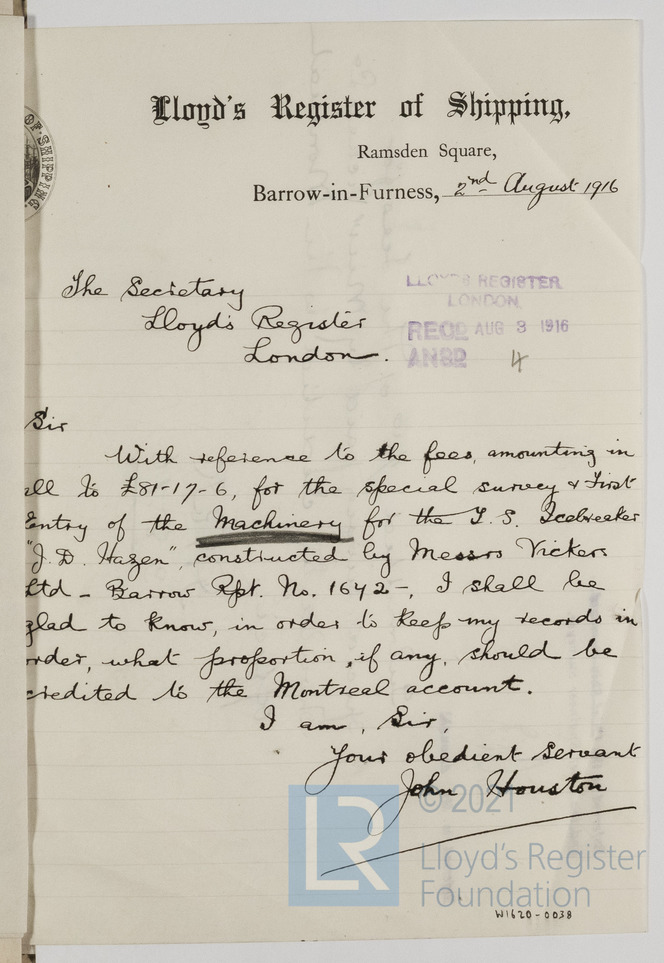 OF SHIPPING
Lloyd's Register of Shipping,
Ramsden Square,
Barrow-in-Furness, 2nd August 1916
LLOYD'S REGISTER
LONDON
RECD AUG 3 1916
ANSD 4
The Secretary
Lloyd's Register
London.
Sir
With reference to the fees, amounting in
all to £81-17-6, for the special survey & First
Entry of the Machinery for the T. S. Icebreaker
"J. D. Hazen", constructed by Messrs Vickers
Ltd - Barrow Rpt. No. 1642 -, I shall be
glad to know, in order to keep my records in
order, what proportion, if any, should be
credited to the Montreal account.
I am, Sir,
Your obedient servant
John Houston
LR
© 2021
Lloyd's Register
Foundation
W1620-0038